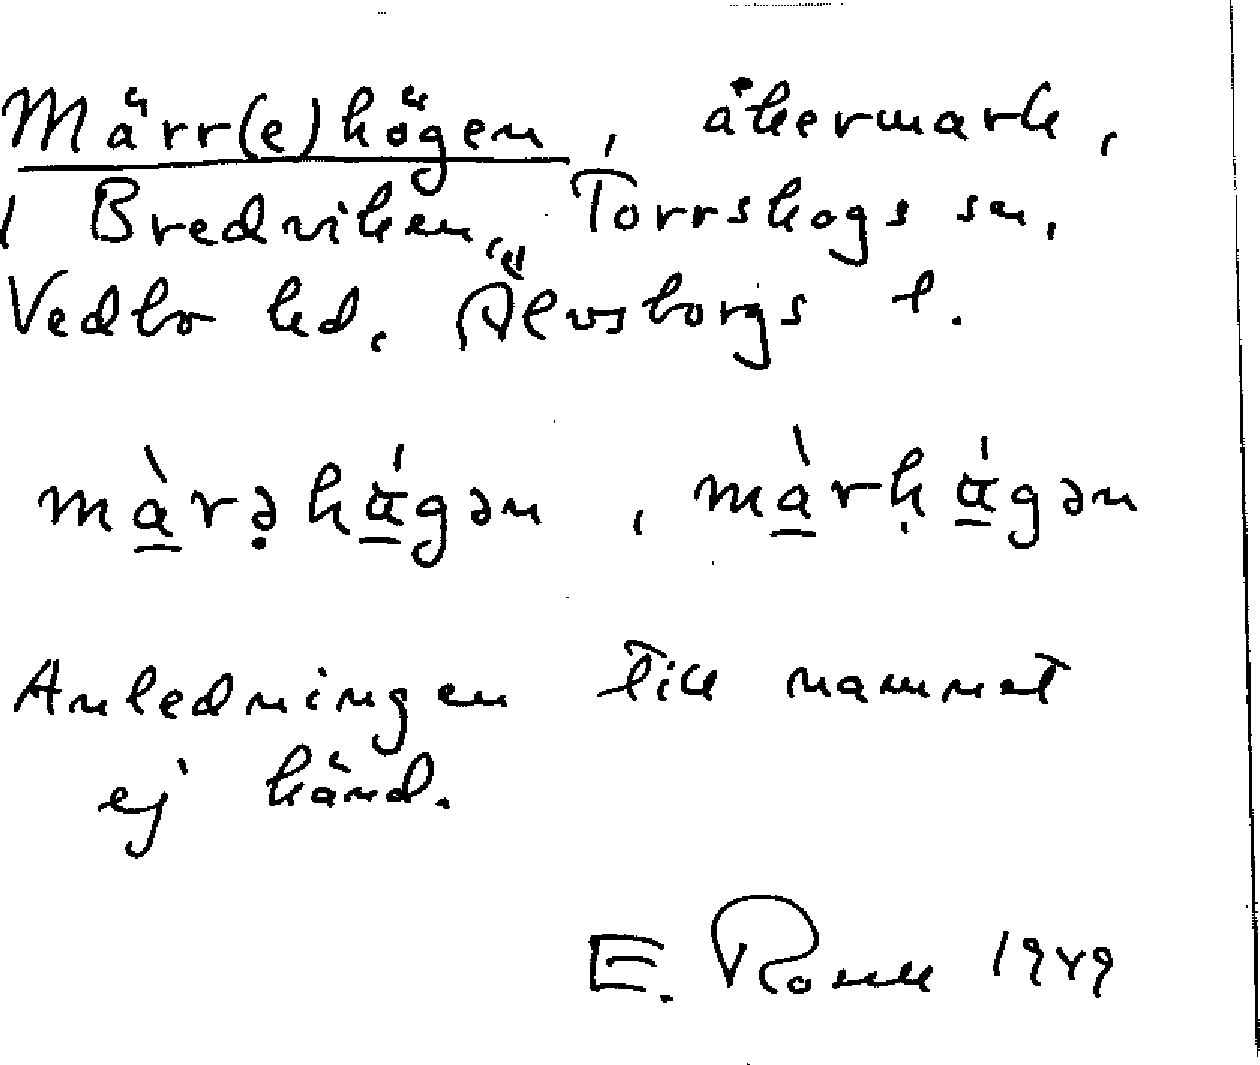 Märr(e)högen, åkermark,
1 Bredviken, Torrskogs sn,
Vedbo hd, Älvsborgs l.
màrəhágən, màrhágən
Anledningen till namnet
ej känd.
E. 1949